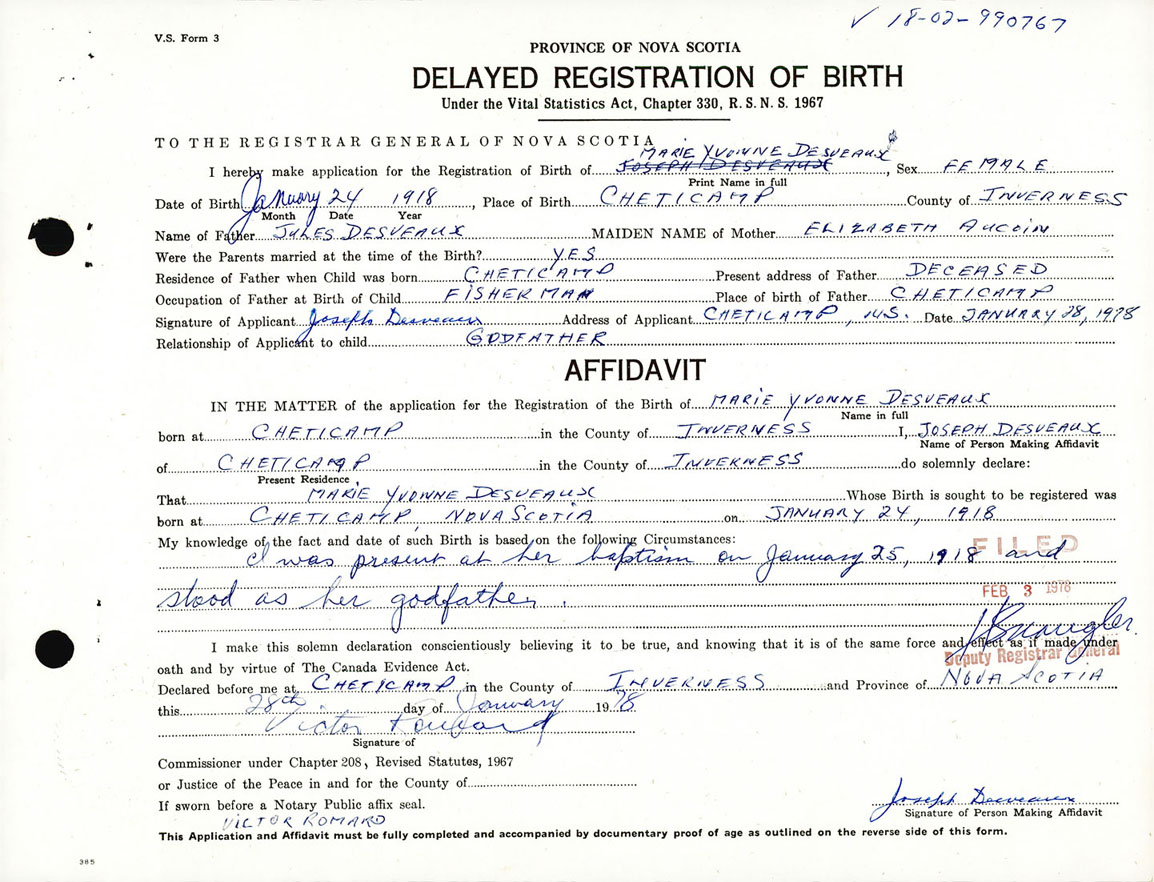 ✓ 18-02-990767
V.S. Form 3
PROVINCE OF NOVA SCOTIA
DELAYED REGISTRATION OF BIRTH
Under the Vital Statistics Act, Chapter 330, R. S. N. S. 1967
TO THE REGISTRAR GENERAL OF NOVA SCOTIA
MARIE YVONNE DESVEAUX
I hereby make application for the Registration of Birth of JOSEPH DESVEAUX, Sex FEMALE
Print Name in full
Date of Birth January 24 1918, Place of Birth CHETICAMP County of INVERNESS
Month Date Year
Name of Father JULES DESVEAUX MAIDEN NAME of Mother ELIZABETH AUCOIN
Were the Parents married at the time of the Birth? YES
Residence of Father when Child was born CHETICAMP Present address of Father DECEASED
Occupation of Father at Birth of Child FISHERMAN Place of birth of Father CHETICAMP
Signature of Applicant Joseph Desveaux Address of Applicant CHETICAMP, N.S. Date JANUARY 28, 1978
Relationship of Applicant to child GODFATHER
AFFIDAVIT
IN THE MATTER of the application for the Registration of the Birth of MARIE YVONNE DESVEAUX
Name in full
born at CHETICAMP in the County of INVERNESS I, JOSEPH DESVEAUX
Name of Person Making Affidavit
of CHETICAMP in the County of INVERNESS do solemnly declare:
Present Residence
That MARIE YVONNE DESVEAUX Whose Birth is sought to be registered was
born at CHETICAMP, NOVA SCOTIA on JANUARY 24, 1918
My knowledge of the fact and date of such Birth is based on the following Circumstances:
I was present at her baptism on January 25, 1918 and
FILED
stood as her godfather.
FEB 3 1978
I make this solemn declaration conscientiously believing it to be true, and knowing that it is of the same force and effect as if made under
Deputy Registrar General
oath and by virtue of The Canada Evidence Act.
Declared before me at CHETICAMP in the County of INVERNESS and Province of NOVA SCOTIA
this 28th day of January 1978
Victor Romard
Signature of
Commissioner under Chapter 208, Revised Statutes, 1967
or Justice of the Peace in and for the County of
If sworn before a Notary Public affix seal.
Joseph Desveaux
VICTOR ROMARD
Signature of Person Making Affidavit
This Application and Affidavit must be fully completed and accompanied by documentary proof of age as outlined on the reverse side of this form.
385